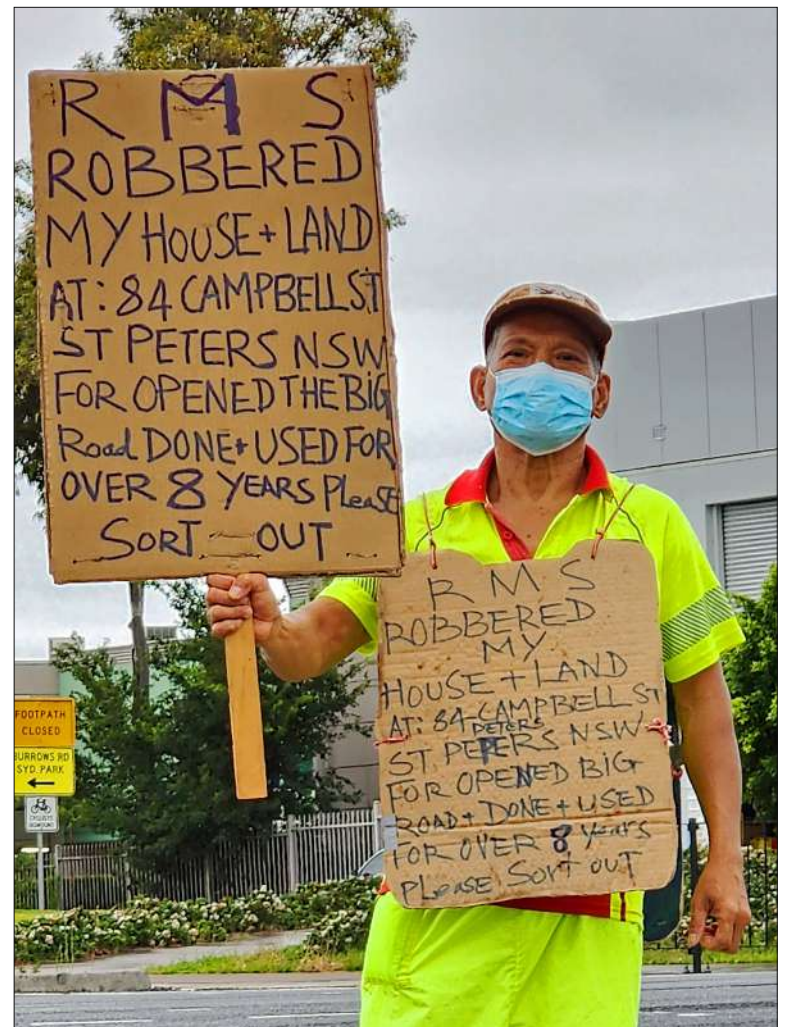 R M S
ROBBERED
MY HOUSE + LAND
AT: 84 CAMPBELL ST
ST PETERS NSW
FOR OPENED THE BIG
Road DONE + USED FOR
OVER 8 YEARS PLeaSE
SORT OUT
R M S
ROBBERED
MY
HOUSE + LAND
AT: 84 CAMPBELL ST
PETERS
ST. PETERS NSW
FOR OPENED BIG
ROAD + DONE + USED
FOR OVER 8 years
PLease Sort ouT
FOOTPATH
CLOSED
BURROWS RD
SYD. PARK
CYCLISTS
DISMOUNT